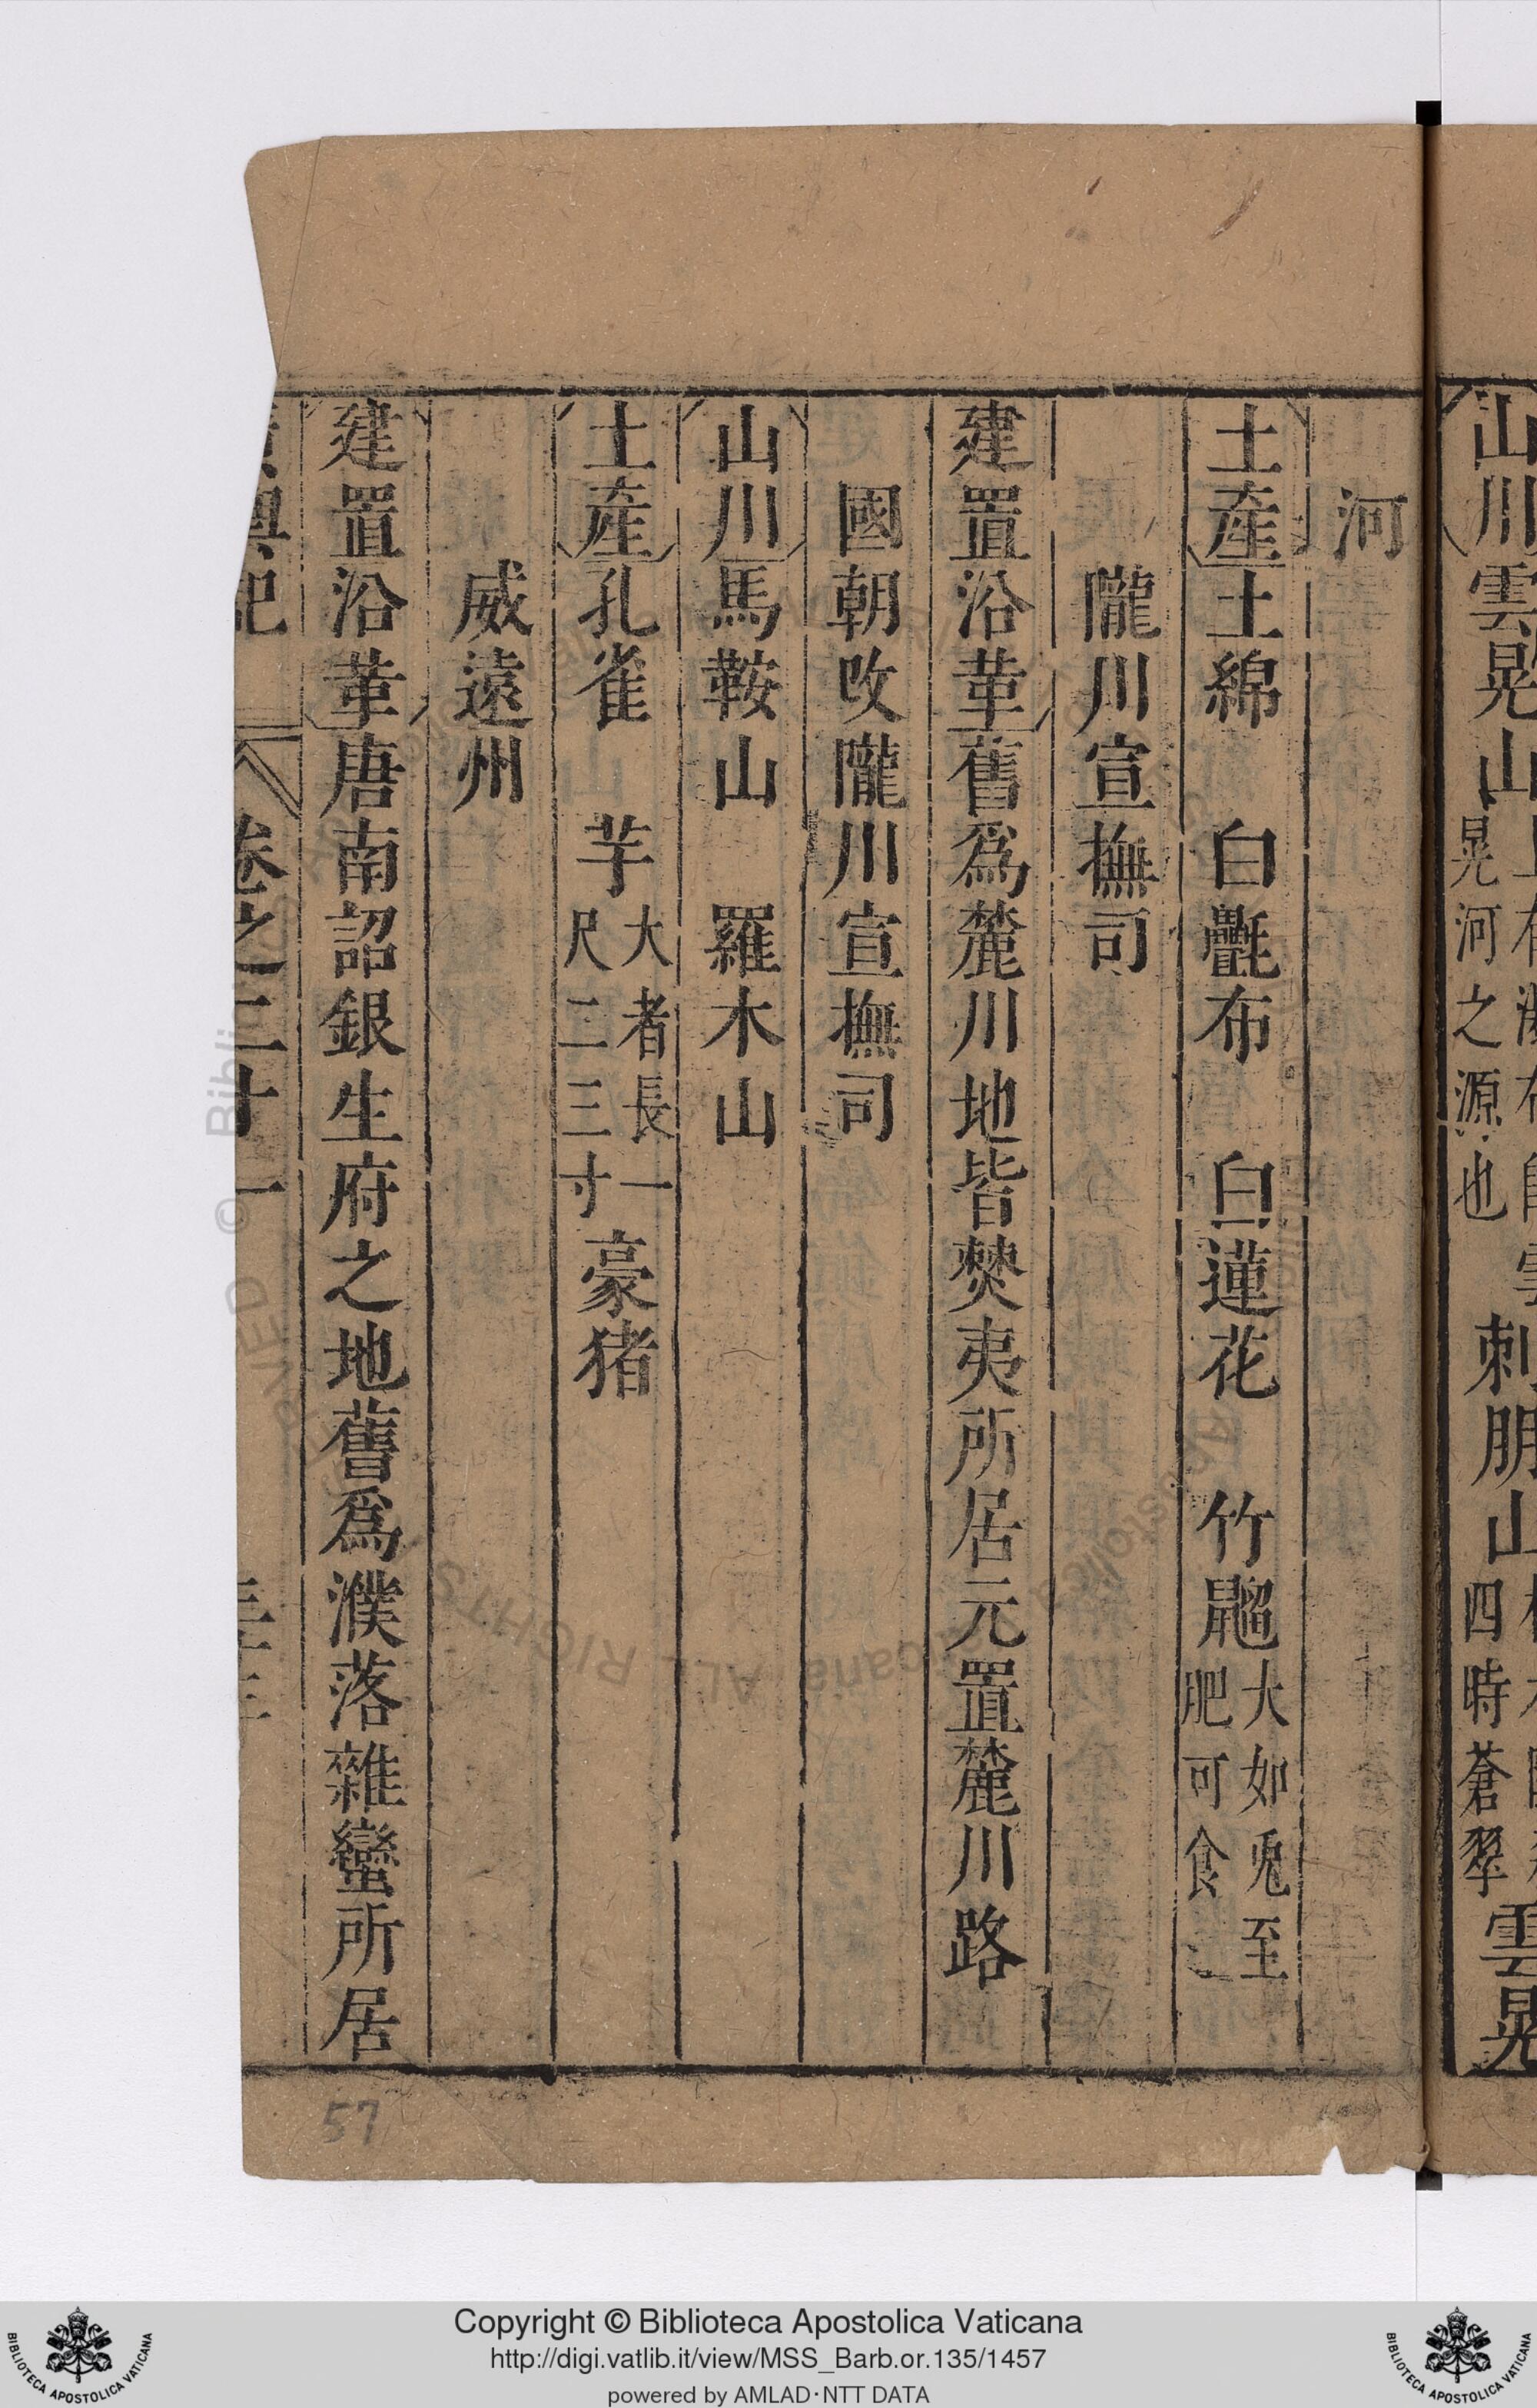 山川雲晃山
晃河之源也
刺朋山
四時蒼翠
雲晃
河
土產土綿 白㲲布 白蓮花 竹鼺大如兎至
肥可食
隴川宣撫司
建置沿革舊爲麓川地皆僰夷所居元置麓川路
國朝改隴川宣撫司
山川馬鞍山 羅木山
土產孔雀 芋大者長一
尺二三寸豪猪
威遠州
建置沿革唐南詔銀生府之地舊爲濮落雜蠻所居
輿記 卷之二十一
57
Copyright © Biblioteca Apostolica Vaticana
http://digi.vatlib.it/view/MSS_Barb.or.135/1457
powered by AMLAD·NTT DATA
BIBLIOTECA APOSTOLICA VATICANA
BIBLIOTECA APOSTOLICA VATICANA